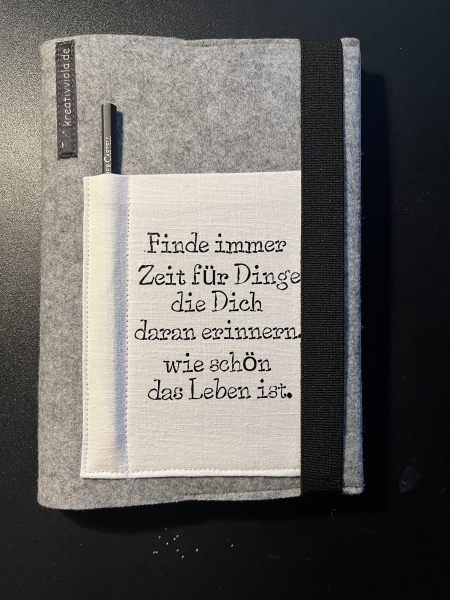 kreativviola.de
CASTELL
Finde immer
Zeit für Dinge
die Dich
daran erinnern.
wie schön
das Leben ist.